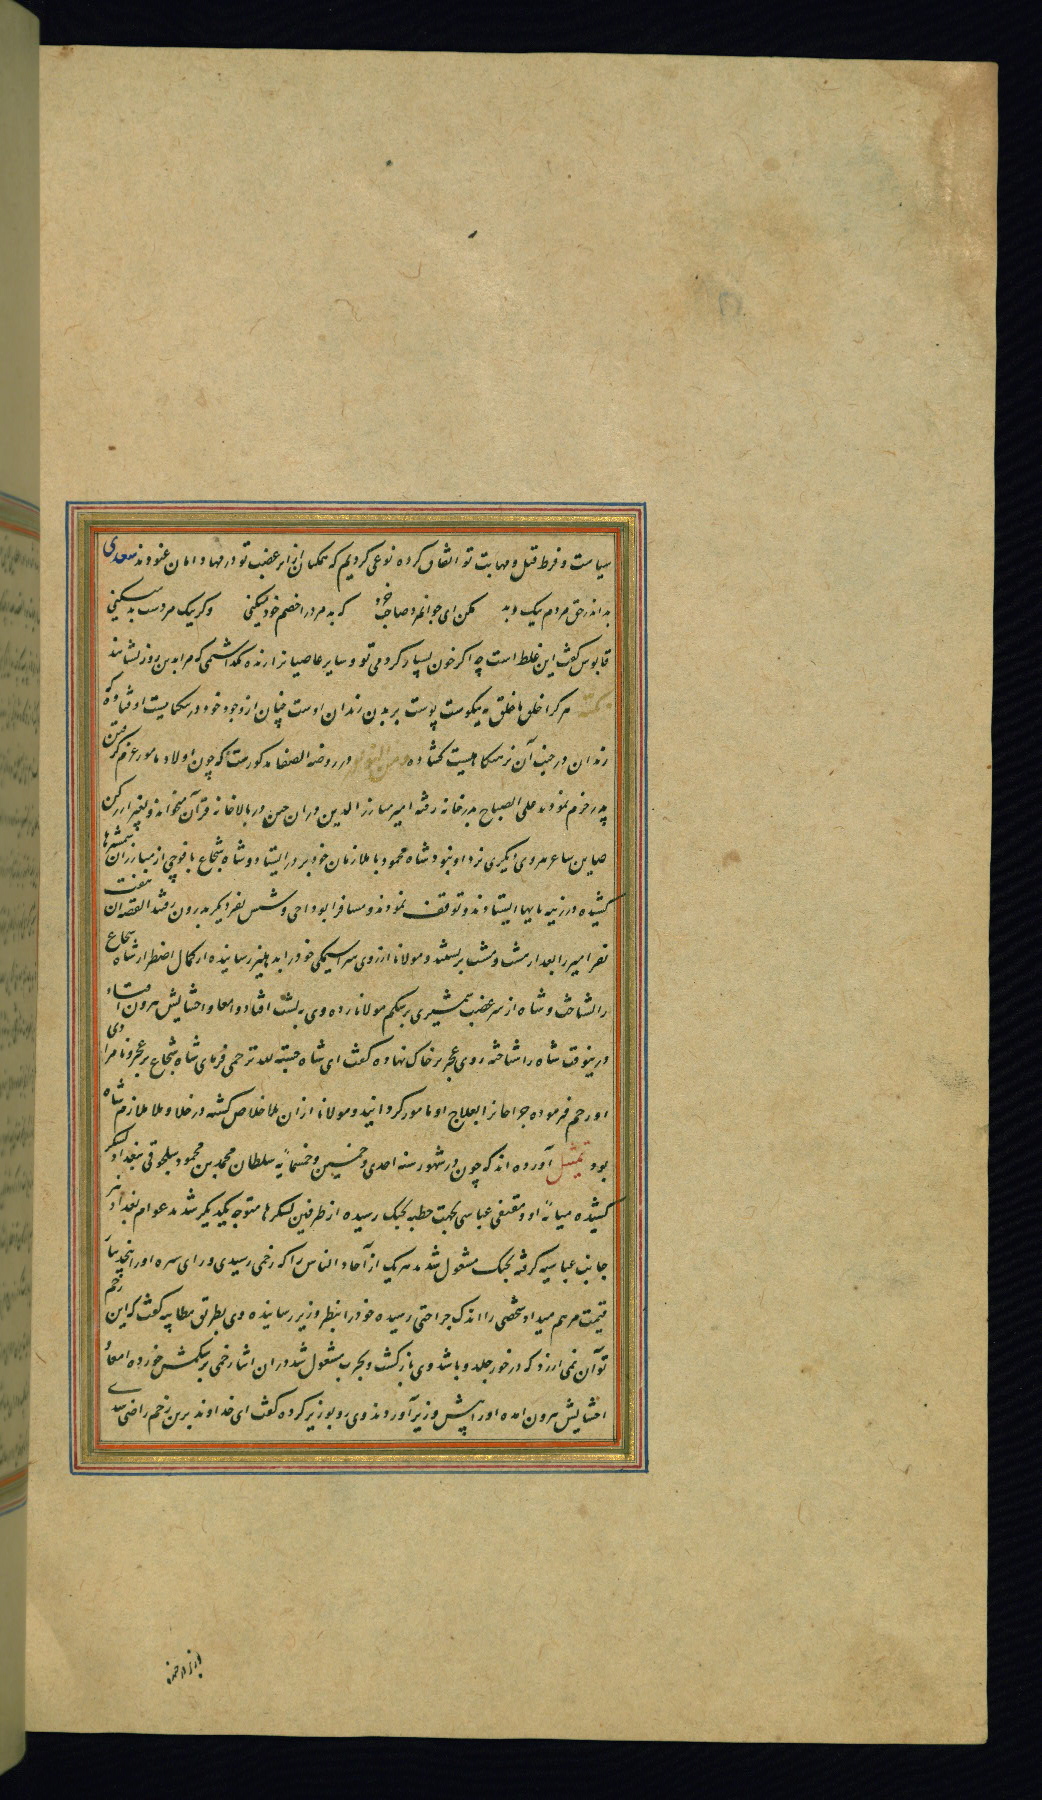 سیاست و فرط قتل و مهابت تو اتفاق کرده نوعی کردیم که همکنان از ابر غضب تو در مهاد امان غنودند سعدی
بد اندر حق مردم نیک و بد مکن ای جوانمرد صاحب خرد که بد مرد را خصم خود میکنی وکر نیک مردست بد میکنی
قابوس کفت این غلط است چه اکر خون بسیار کردمی تو و سایر عاصیانرا زنده نکذاشتمی که مرا بدین روز نشانند
نکته هر کرا خلق با خلق نه نیکوست پوست بر بدن زندان اوست چنان از وجود خود در تنکنائیست افتاده که
زندان در جنب آن نزهتکاهیست کشاده من النوادر در روضة الصفا مذکورست که چون اولاد مامور عزم کرفتن
پدر جزم نمودند علی الصباح بدرخانه رفته امیر مبارز الدین دران حین در بالاخانه قرآن میخواند و بغیر از رکن
صاین شاعر هروی دیکری نزد او نبود شاه محمود با ملازمان خود بر در ایستاد و شاه شجاع با فوجی از مبارزان شمشیرها
کشیده در زینه پایها ایستادند و توقف نمودند و مسافر ابوداجی و شش نفر دیکر بدرون رفتند القصه ان هفت
نفر امیر را بعد از مشت و مشت بربستند و مولانا از روی سراسیمکی خود را بدهلیز رسانیده از کمال اضطرار شاه شجاع
را نشناخت و شاه از سر غضب شمشیری بر شکم مولانا زده وی به پشت افتاد و امعا و احشایش بیرون افتاد
درینوقت شاه را شناخته روی عجز بر خاک نهاده کفت ای شاه حسبة لله ترحمی فرمای شاه شجاع بر عجز و نامرادی
او رحم فرموده جراحانرا بعلاج او مامور کردانید و مولانا ازان بلا خلاص کشته در خلا و ملا ملازم شاه
بود تمثیل آورده اند که چون در شهور سنه احدی و خمسین و خمسمائه سلطان محمد بن محمود سلجوقی ببغداد لشکر
کشیده میانهٔ او و مقتفی عباسی بجهت خطبه بجنک رسیده از طرفین لشکرها متوجه یکدیکر شدند عوام بغداد نیز
جانب عباسیه کرفته بجنک مشغول شدند هر یک از آحاد الناس را که زخمی رسیدی وزرای سره او را پنج دینار
قیمت مرهم میداد شخصی را اندک جراحتی رسیده خود را بنظر وزیر رسانیده وی بطریق مطایبه کفت که این زخم
تو آن نمی ارزد که در خور جلدو باشد وی بازکشت و بحرب مشغول شد دران اثنا زخمی بر شکمش خورده امعا و
احشایش بیرون امده او را پیش وزیر آوردند وی رو بوزیر کرده کفت ای خداوند برین زخم راضی شدی